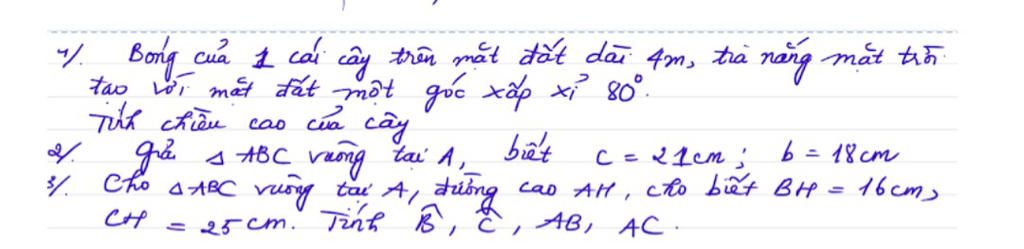 1/. Bóng của 1 cái cây trên mặt đất dài 4m, tia nắng mặt trời
tạo với mặt đất một góc xấp xỉ 80°.
Tính chiều cao của cây
2/. giả △ ABC vuông tại A, biết c = 21cm ; b = 18cm
3/. Cho △ABC vuông tại A, đường cao AH, cho biết BH = 16cm,
CH = 25cm. Tính B̂, Ĉ, AB, AC.